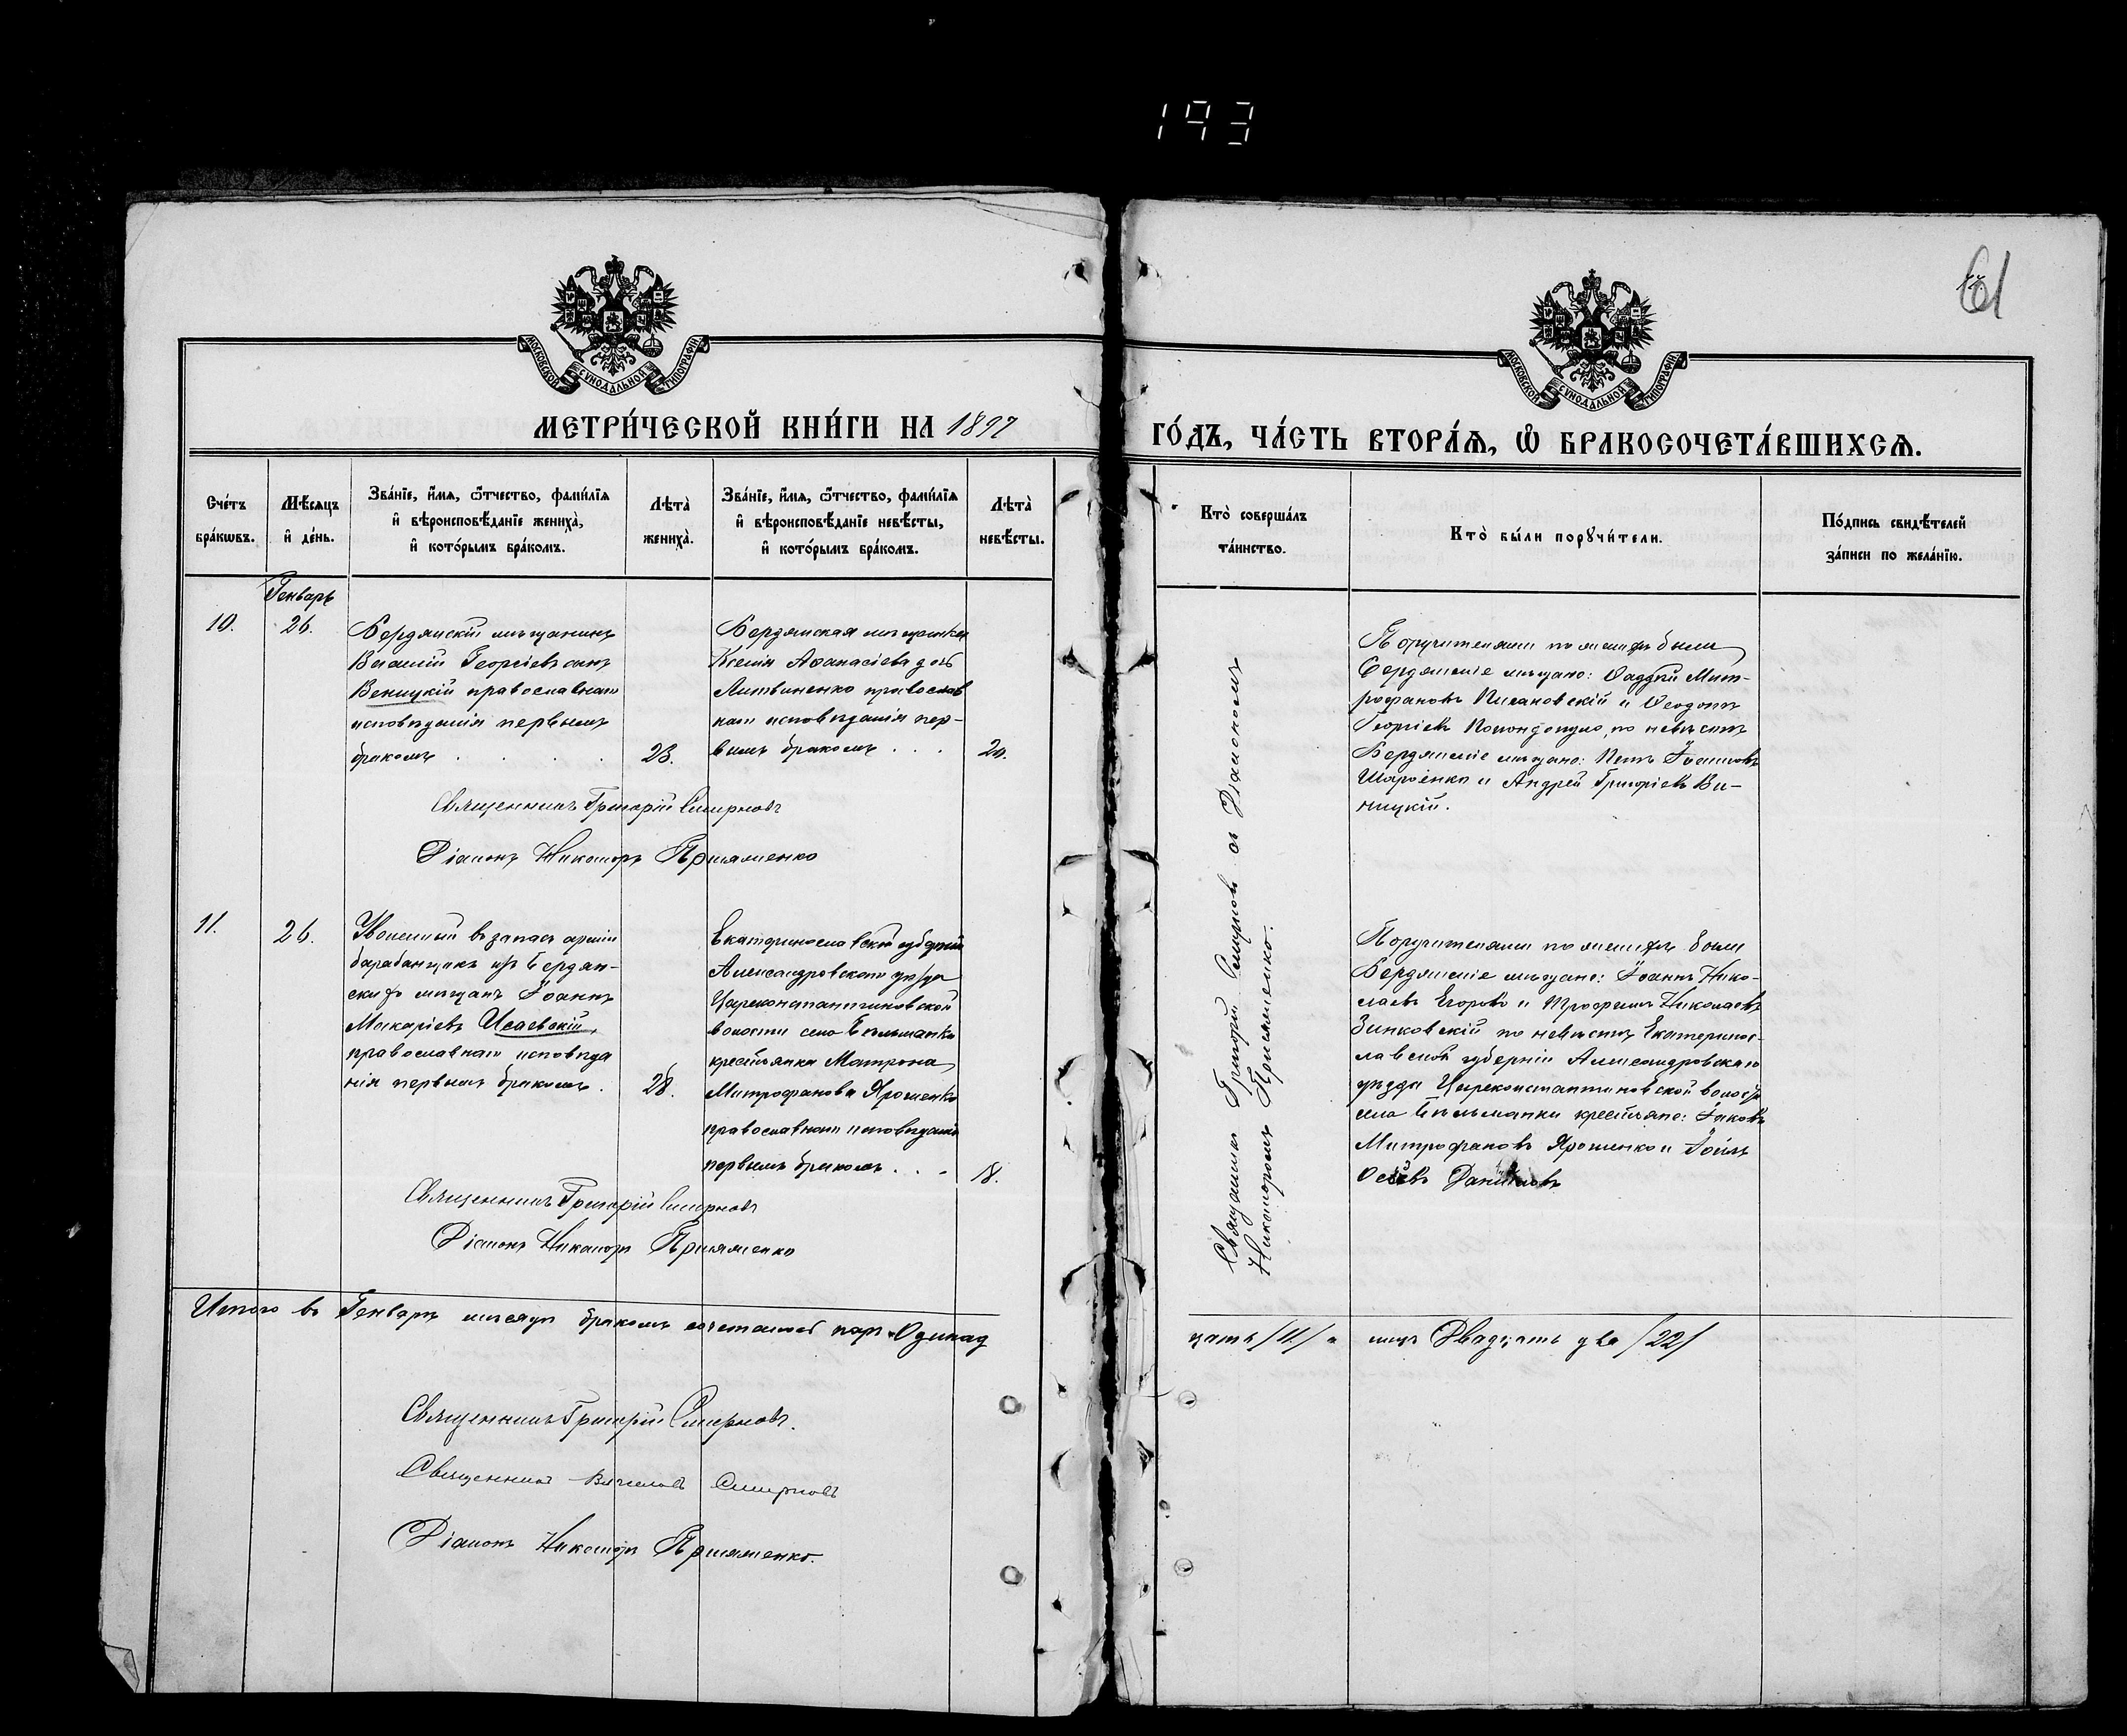 193
61
МОСКОВСКОЙ СѴНОДАЛЬНОЙ ТИПОГРАФІИ
МОСКОВСКОЙ СѴНОДАЛЬНОЙ ТИПОГРАФІИ
МЕТРИ́ЧЕСКОЙ КНИ́ГИ НА 1897
ГО́ДЪ, ЧА́СТЬ ВТОРА́Ѧ, Ѡ҆ БРАКОСОЧЕТА́ВШИХСѦ.
Сче́тъ
бра́кѡвъ.
Мѣ́сяцъ
и҆ де́нь.
Зва́нїе, и҆́мѧ, ѻ҆́тчество, фами́лїѧ
и҆ вѣроисповѣ́данїе жениха̀,
и҆ кото́рымъ бра́комъ.
Лѣта̀
жениха̀.
Зва́нїе, и҆́мѧ, ѻ҆́тчество, фами́лїѧ
и҆ вѣроисповѣ́данїе невѣ́сты,
и҆ кото́рымъ бра́комъ.
Лѣта̀
невѣ́сты.
Кто̀ соверша́лъ
та́инство.
Кто̀ бы́ли порꙋчи́тели.
По́дпись свидѣ́телей
за́писи по жела́нїю.
Генварь
10.
26.
Бердянскій мѣщанинъ
Василій Георгіевъ сынъ
Веницкій православнаго
исповѣданія первымъ
бракомъ
23.
Бердянская мѣщанка
Ксенія Аѳанасіева дочь
Литвиненко православ
наго исповѣданія пер-
вымъ бракомъ . . .
20.
Священникъ Григорій Смирновъ
Діаконъ Никаноръ Присяженко
Поручителями по женихѣ были
Бердянскіе мѣщане: Ѳаддей Мит-
рофановъ и Ѳеодотъ
Георгіевъ по невѣстѣ
Бердянскіе мѣщане: Петръ Іоанновъ
и Андрей Григоріевъ Ви-
ницкій.
11.
26.
Уволенный въ запасъ арміи
барабанщикъ изъ Бердян-
скихъ мѣщанъ Іоаннъ
Макаріевъ Исаевскій,
православнаго исповѣда
нія первымъ бракомъ.
28.
Екатеринославской губерніи
Александровскаго уѣзда
Цареконстантиновской
волости села Бѣльманки
крестьянка Матрона
Митрофанова Ярошенко
православнаго исповѣданія
первымъ бракомъ . . -
18.
Священникъ Григорій Смирновъ
Діаконъ Никаноръ Присяженко
Поручителями по женихѣ были
Бердянскіе мѣщане: Іоаннъ Нико-
лаевъ Егоровъ и Трофимъ Николаевъ
Зинковскій по невѣстѣ Екатеринос-
лавской губерніи Александровскаго
уѣзда Цареконстантиновской волости
села Бѣльманки крестьяне: Іаковъ
Митрофановъ Ярошенко и
Даниловъ
Священникъ Григорій Смирновъ съ Діакономъ
Никаноромъ Присяженко.
Итого въ Генварѣ мѣсяцѣ бракомъ сочеталось паръ Одинад
цать /11/ а лицъ Двадцать два /22/
Священникъ Григорій Смирновъ.
Священникъ Смирновъ
Діаконъ Никаноръ Присяженко.